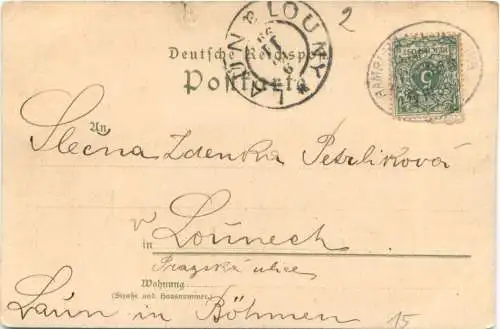 2
LAUN LOUNY
Deutsche Reichspost
Postkarte
An
Slečna Zdenka Petrlikova
v
in Lounech
Pragská ulice
Wohnung
(Straße und Hausnummer)
Laun in Böhmen
15